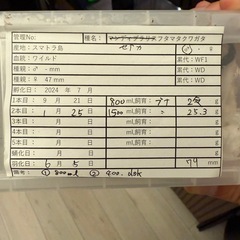 管理No: 種名: マンディブラリスフタマタクワガタ
産地:スマトラ島 セアカ ♂・♀
血統:ワイルド 累代:WF1
種親:♂ mm 累代:WD
種親:♀ 47 mm 累代:WD
孵化日: 2024 年 7 月
1本目: 9 月 21 日 800 mL飼育: ブナ 2令 g
2本目: 1 月 25 日 1500 mL飼育: 〃 25.3 g
3本目: 月 日 mL飼育: g
4本目: 月 日 mL飼育: g
5本目: 月 日 mL飼育: g
蛹化日 月 日
羽化日: 6 月 5 日 79 mm
備考: ① 800ml ② 900.